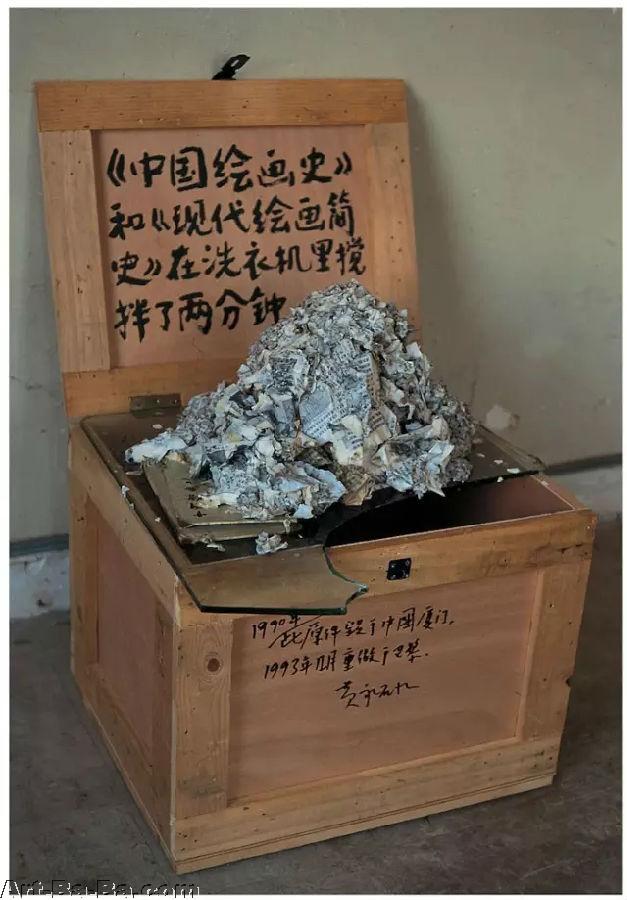 《中国绘画史》
和《现代绘画简
史》在洗衣机里搅
拌了两分钟
1990年
此原作毁于中国厦门。
1993年 重做于巴黎.
黄永砅
Art-Ba-Ba.com